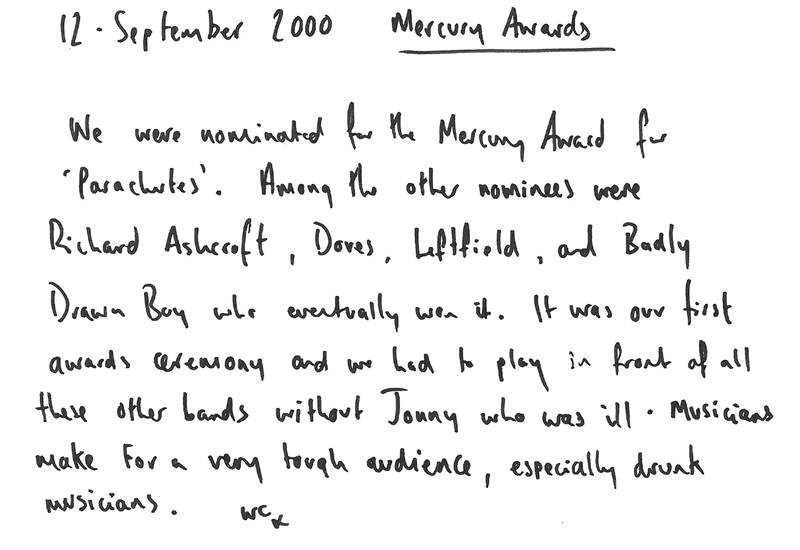 12 · September 2000 Mercury Awards
We were nominated for the Mercury Award for
'Parachutes'. Among the other nominees were
Richard Ashcroft, Doves, Leftfield, and Badly
Drawn Boy who eventually won it. It was our first
awards ceremony and we had to play in front of all
these other bands without Jonny who was ill. Musicians
make for a very tough audience, especially drunk
musicians. WC x